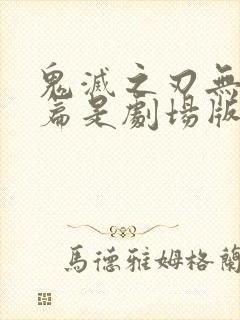 鬼滅之刃無
篇是劇場版
馬德雅姆格蘭